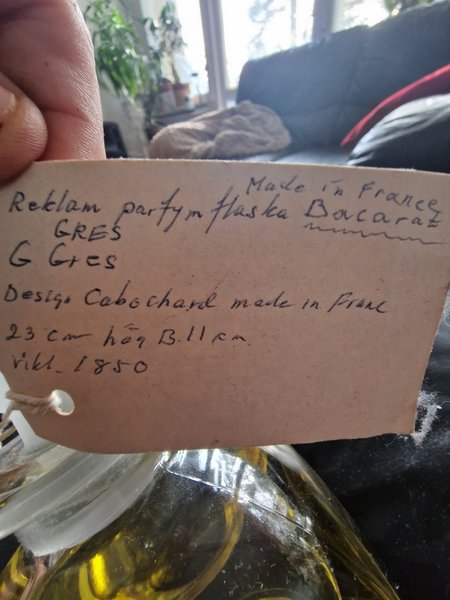 Made in France
Reklam parfym flaska Bacarat
GRES
G Gres
Design Cabochard made in Franc
23 cm hög B. 11 cm.
vikt_ 1850